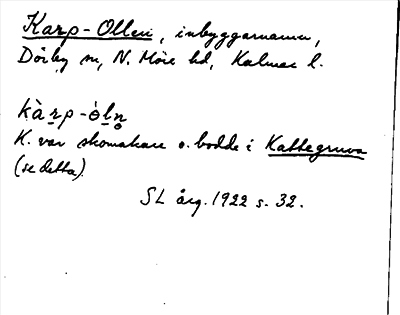 Karp-Ollen, inbyggarnamn,
Dörby sn, N. Möre hd, Kalmar l.
kàrp-òln
K. var skomakare o. bodde i Kattegruva
(se detta).
SL årg. 1922 s. 32.